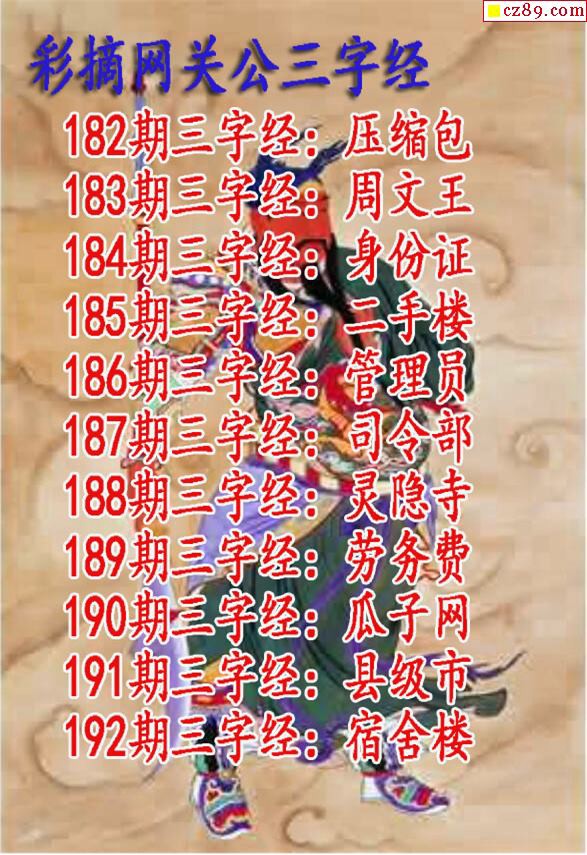 cz89.com
彩摘网关公三字经
182期三字经：压缩包
183期三字经：周文王
184期三字经：身份证
185期三字经：二手楼
186期三字经：管理员
187期三字经：司令部
188期三字经：灵隐寺
189期三字经：劳务费
190期三字经：瓜子网
191期三字经：县级市
192期三字经：宿舍楼